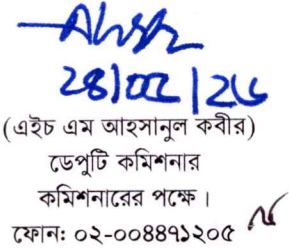 ২৪/০২/২৬
(এইচ এম আহসানুল কবীর)
ডেপুটি কমিশনার
কমিশনারের পক্ষে।
ফোন: ০২-০০৪৪৭১২০৫